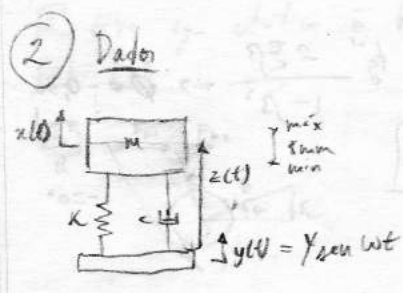 2 Dados
x(t)
m
máx
8mm
min
z(t)
K
c
y(t) = Y sen wt